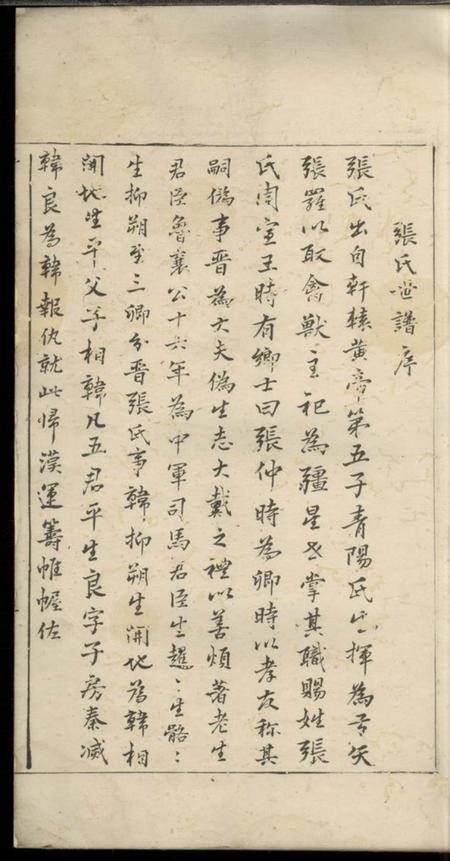 張氏世譜序
張氏出自軒轅黃帝第五子青陽氏生揮為弓矢
張羅以取禽獸主祀為疆星世掌其職賜姓張
氏周宣王時有卿士曰張仲時為卿時以孝友称其
嗣偽事晋為大夫偽生志大戴之禮以善煩著老生
君臣魯襄公十六年為中軍司馬君臣生趯:生骼:
生抑朔至三卿分晋張氏事韓抑朔生開地為韓相
開地生平父子相韓凡五君平生良字子房秦滅
韓良為韓報仇就此帰漢運籌帷幄佐